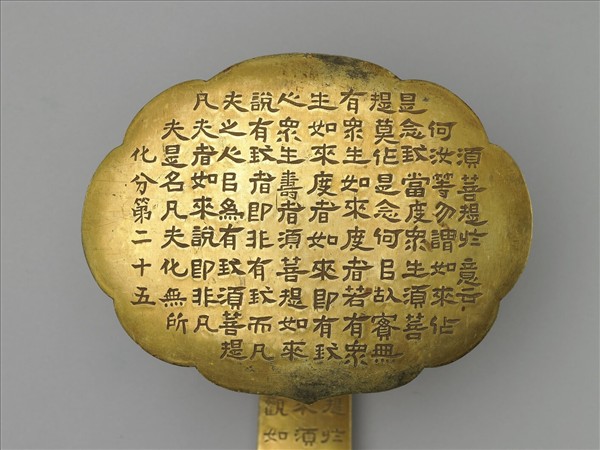 須菩提於意云
何汝等勿謂如來作
是念我當度眾生須菩
提莫作是念何㠯故實無
有眾生如來度者若有眾
生如來度者如來即有我
人眾生壽者須菩提如來
說有我者即非有我而凡
夫之人㠯為有我須菩提
凡夫者如來說即非凡
夫是名凡夫化無所
化分第二十五
提於
來須
觀如